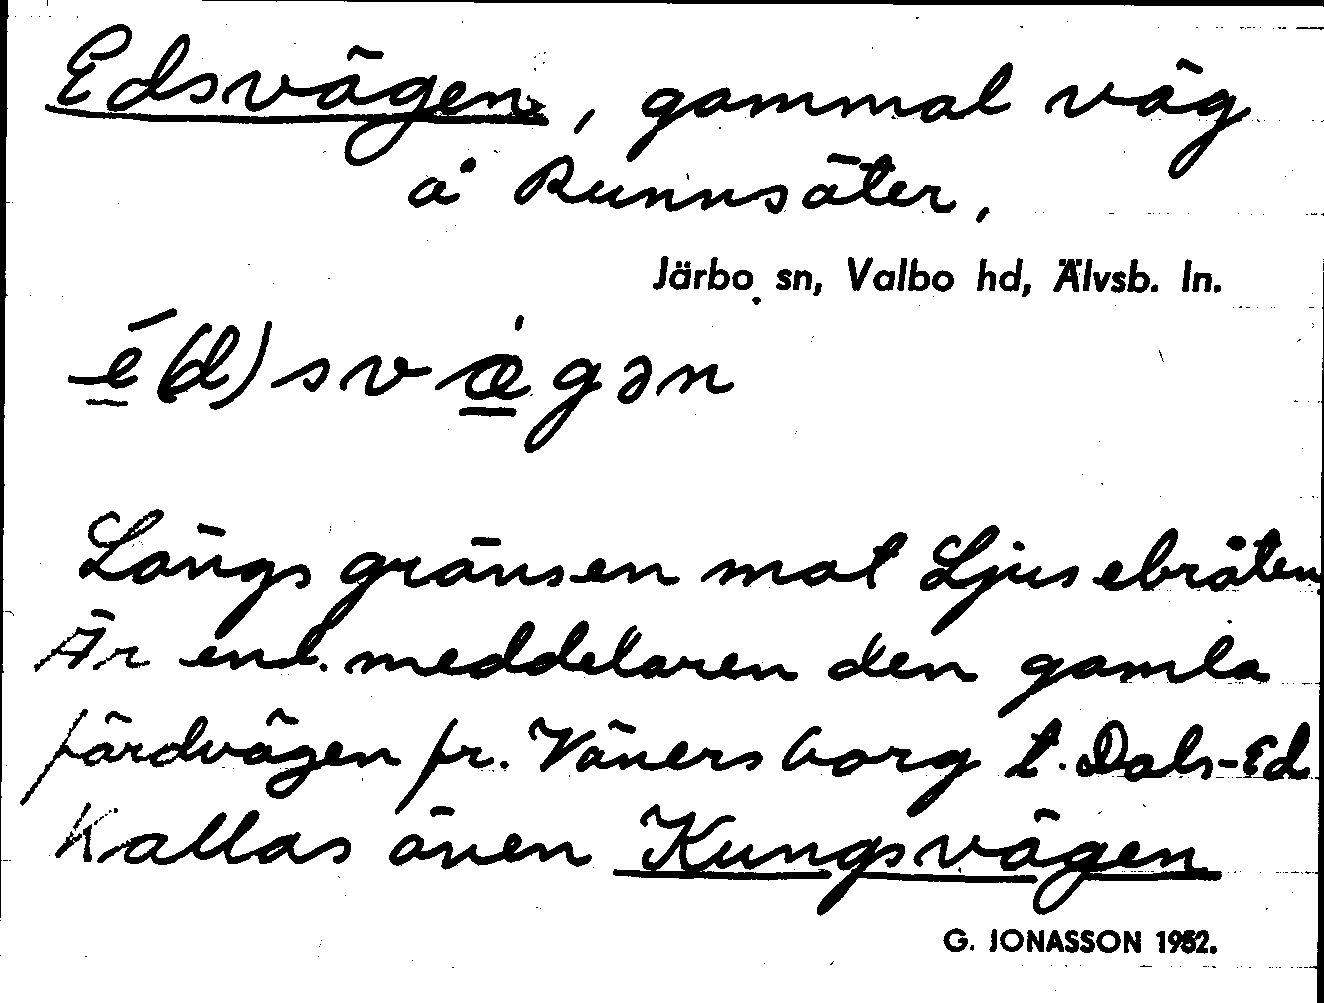 Edsvägen, gammal väg
å Runnsäter,
Järbo sn, Valbo hd, Älvsb. ln.
é(d)svæ̀gən
Längs gränsen mot Ljusebråten
Är enl. meddelaren den gamla
färdvägen fr. Vänersborg t. Dals-Ed
Kallas även Kungsvägen
G. JONASSON 1952.